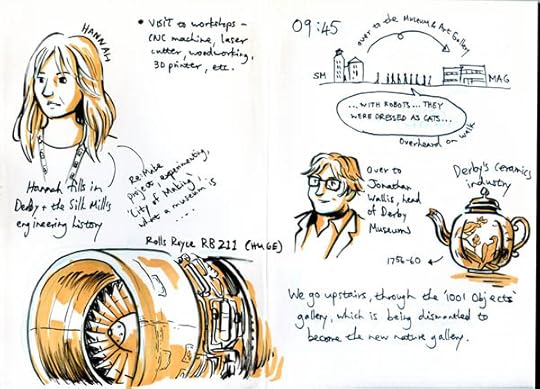 HANNAH
• VISIT to workshops –
CNC machine, laser
cutter, woodworking,
3D printer, etc.
Hannah fills in
Derby + the Silk Mill's
engineering history
Re:Make
project experimenting,
'City of Making',
what a museum is
....
Rolls Royce RB211 (HUGE)
09:45
over to the Museum & Art Gallery
SM
MAG
...WITH ROBOTS... THEY
WERE DRESSED AS CATS...
Overheard on walk
over to
Jonathan
Wallis, head
of Derby
Museums
Derby's Ceramics
industry
1756-60
We go upstairs, through the '1001 Objects'
gallery, which is being dismantled to
become the new nature gallery.